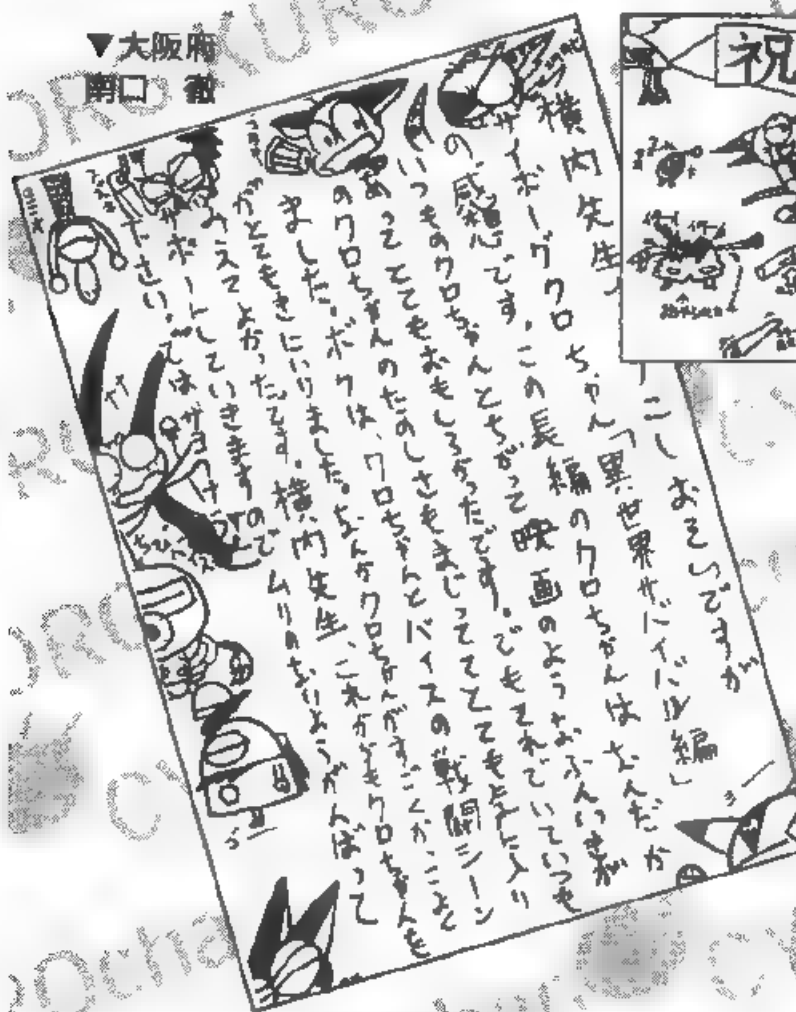 ▼大阪府
南口 徹
祝
横内先生、
すこしおそいですが
サイボーグクロちゃん「異世界サバイバル編」
の感想です。この長編のクロちゃんはなんだか
いつものクロちゃんとちがって映画のようなふんいきが
あってとてもおもしろかったです。でもそれでいていつも
のクロちゃんのたのしさもまじっててとても気に入り
ました。ボクは、クロちゃんとバイスの戦闘シーン
がとてもきにいりました。なんかクロちゃんがすごくかっこよく
みえてよかったです。横内先生、これからもクロちゃんを
サポートしていきますのでムリのないようがんばって
下さい。ではサヨーナラ
ちびバイス
KUROchan